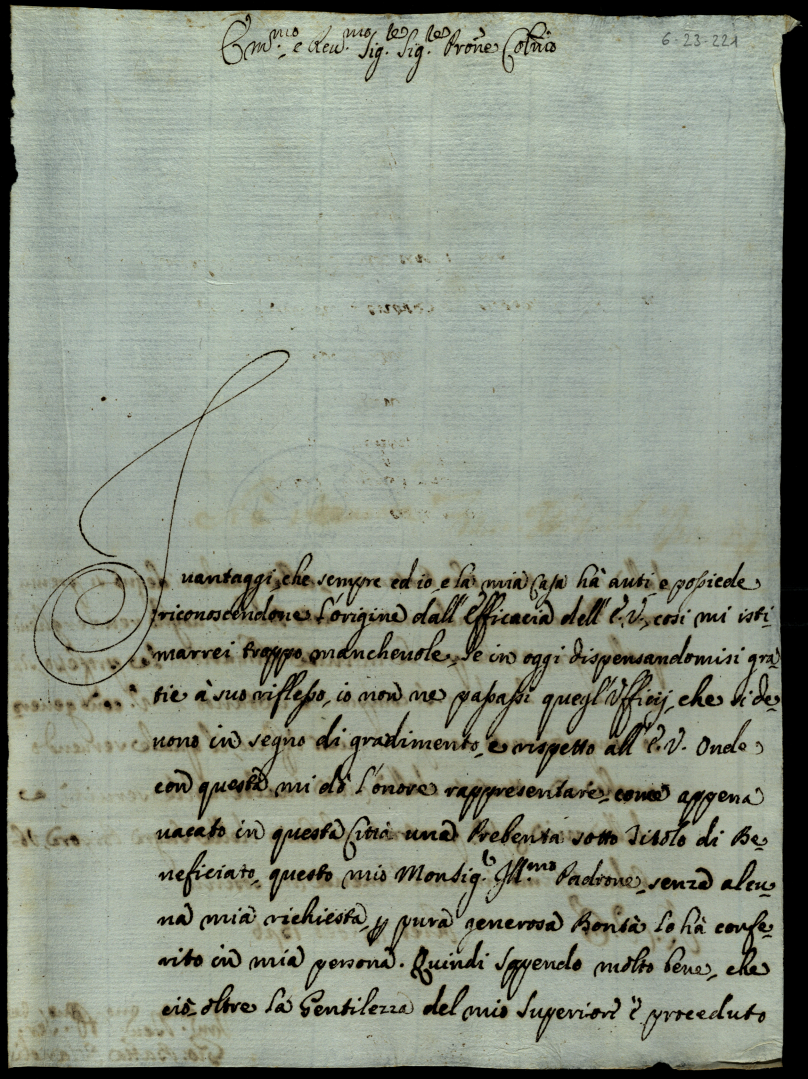 Em.mo e Reu.mo Sig.re Sig.re Prone Col.mo
6-23-221
I uantaggi, che sempre ed io, e la mia Casa hà auti, e possiede
riconoscendone l'origine dall'Efficacia dell'E.V., cosi mi isti-
marrei troppo mancheuole, se in oggi dispensandomisi gra-
tie à suo riflesso, io non ne passassi quegl'Vfficij, che si de-
uono in segno di gradimento, e rispetto all'E.V. Onde
con questa mi dò l'onore rappresentare, come appena
uacato in questa Città una Prebenta sotto Titolo di Be-
neficiato, questo mio Monsig.r Ill.mo Padrone, senza alcu-
na mia richiesta, p pura generosa Bontà lo hà confe-
rito in mia persona. Quindi sapendo molto bene, che
ciò oltre la Gentilezza del mio Superiore è proceduto